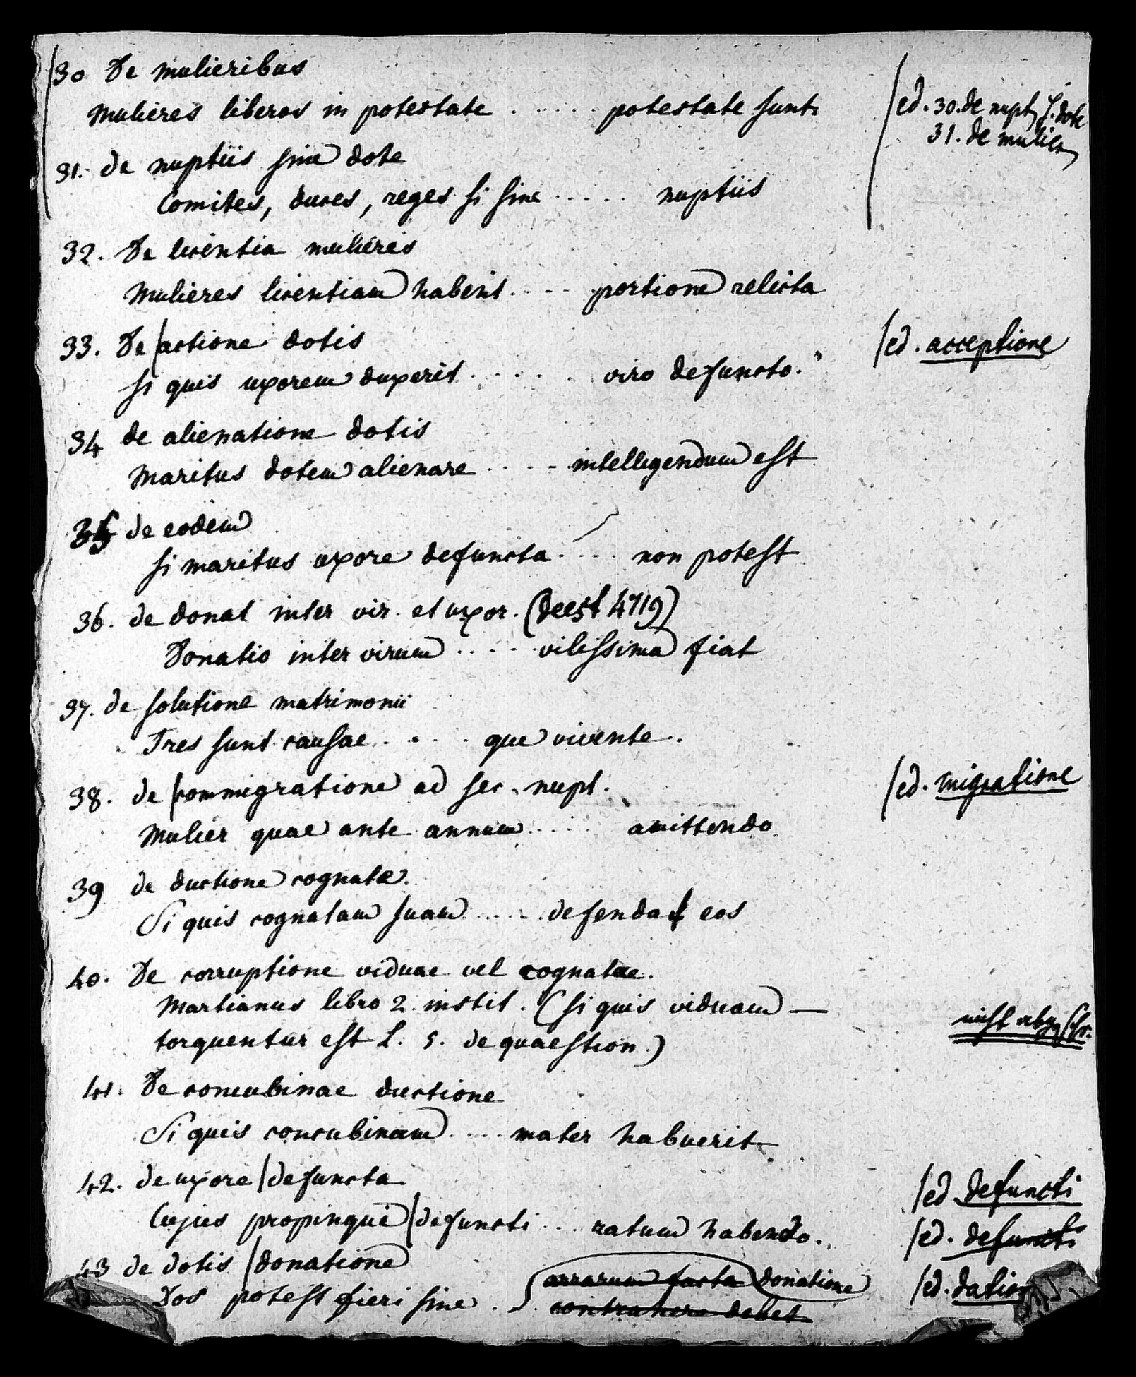 30 De mulieribus
Mulieres liberos in potestate . . . . . potestate sunt. /ed. 30. de nupt. s. dote
31. de mulier.
31. de nuptiis sine dote
Comites, duces, reges si sine . . . . . nuptiis
32. De licentia mulieris
Mulieres licentiam habent . . . . portione relicta
33. De |actione dotis /ed. acceptione
Si quis uxorem duxerit . . . . . . viro defuncto.
34 de alienatione dotis
Maritus dotem alienare . . . . intelligendum est
35 de eodem
Si maritus uxore defuncta . . . . non potest
36. de donat inter vir. et uxor. (deest 4719)
Donatio inter virum . . . . vilissima fiat
37. de solutione matrimonii
Tres sunt causae . . . . que vivente.
38. de |commigratione ad sec. nupt. /ed. migratione
Mulier quae ante annum . . . . . amittendo
39 de ductione cognatae.
Si quis cognatam suam . . . . defendat eos
40. De corruptione viduae vel cognatae.
Martianus libro 2 instit. (si quis viduam —
torquentur est l. 5. de quaestion.)
41. De concubinae ductione
Si quis concubinam . . . . mater habuerit
42. de uxore |defuncta /ed. defuncti
Cujus propinqui |defuncti . . . ratum habendo. /ed. defunct.
43 de dotis |donatione /ed. dation
Dos potest fieri sine . . arrarum facta donatione
contrahere debet